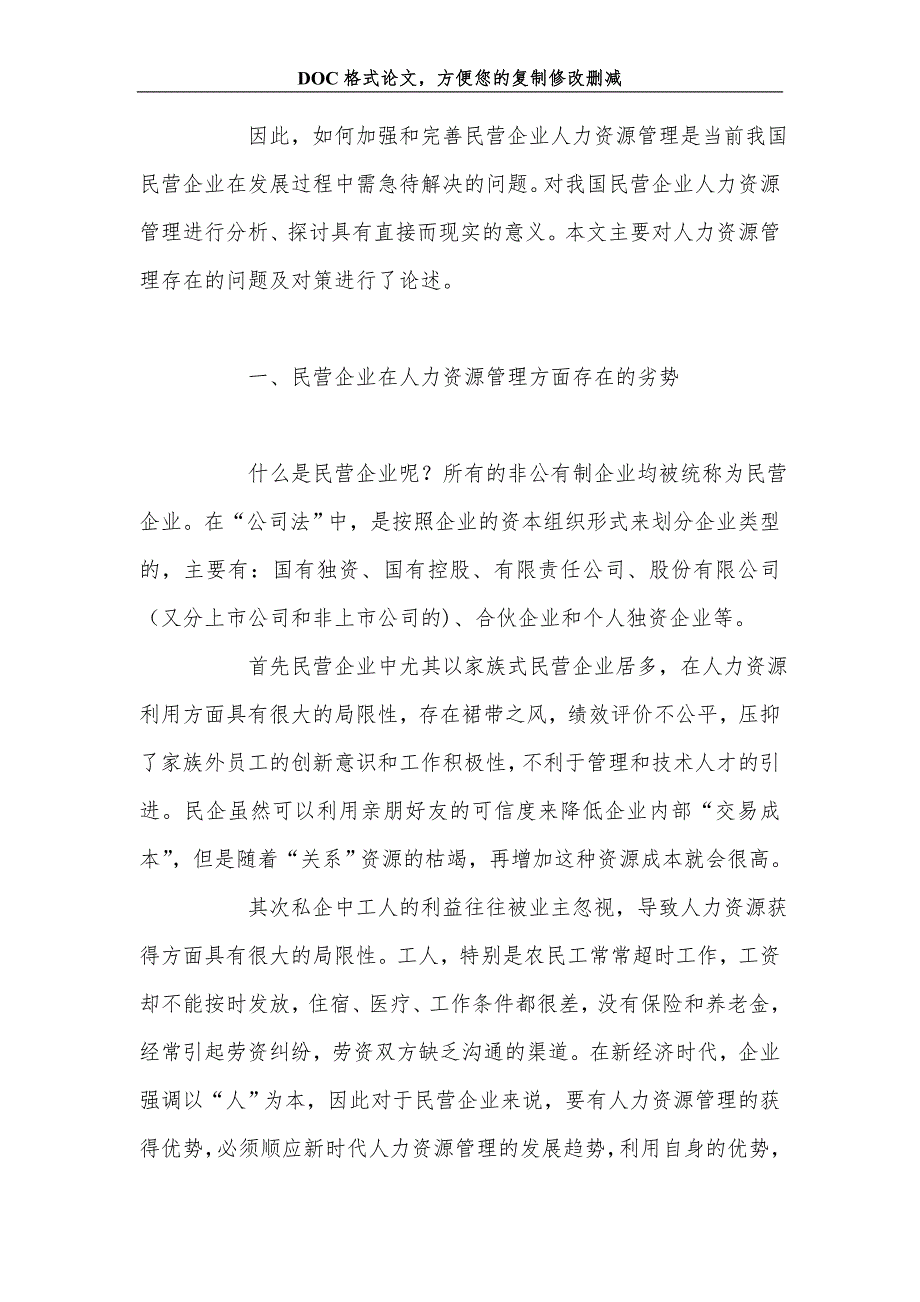 DOC 格式论文，方便您的复制修改删减
因此，如何加强和完善民营企业人力资源管理是当前我国
民营企业在发展过程中需急待解决的问题。对我国民营企业人力资源
管理进行分析、探讨具有直接而现实的意义。本文主要对人力资源管
理存在的问题及对策进行了论述。
一、民营企业在人力资源管理方面存在的劣势
什么是民营企业呢？所有的非公有制企业均被统称为民营
企业。在“公司法”中，是按照企业的资本组织形式来划分企业类型
的，主要有：国有独资、国有控股、有限责任公司、股份有限公司
（又分上市公司和非上市公司的)、合伙企业和个人独资企业等。
首先民营企业中尤其以家族式民营企业居多，在人力资源
利用方面具有很大的局限性，存在裙带之风，绩效评价不公平，压抑
了家族外员工的创新意识和工作积极性，不利于管理和技术人才的引
进。民企虽然可以利用亲朋好友的可信度来降低企业内部“交易成
本”，但是随着“关系”资源的枯竭，再增加这种资源成本就会很高。
其次私企中工人的利益往往被业主忽视，导致人力资源获
得方面具有很大的局限性。工人，特别是农民工常常超时工作，工资
却不能按时发放，住宿、医疗、工作条件都很差，没有保险和养老金，
经常引起劳资纠纷，劳资双方缺乏沟通的渠道。在新经济时代，企业
强调以“人”为本，因此对于民营企业来说，要有人力资源管理的获
得优势，必须顺应新时代人力资源管理的发展趋势，利用自身的优势，